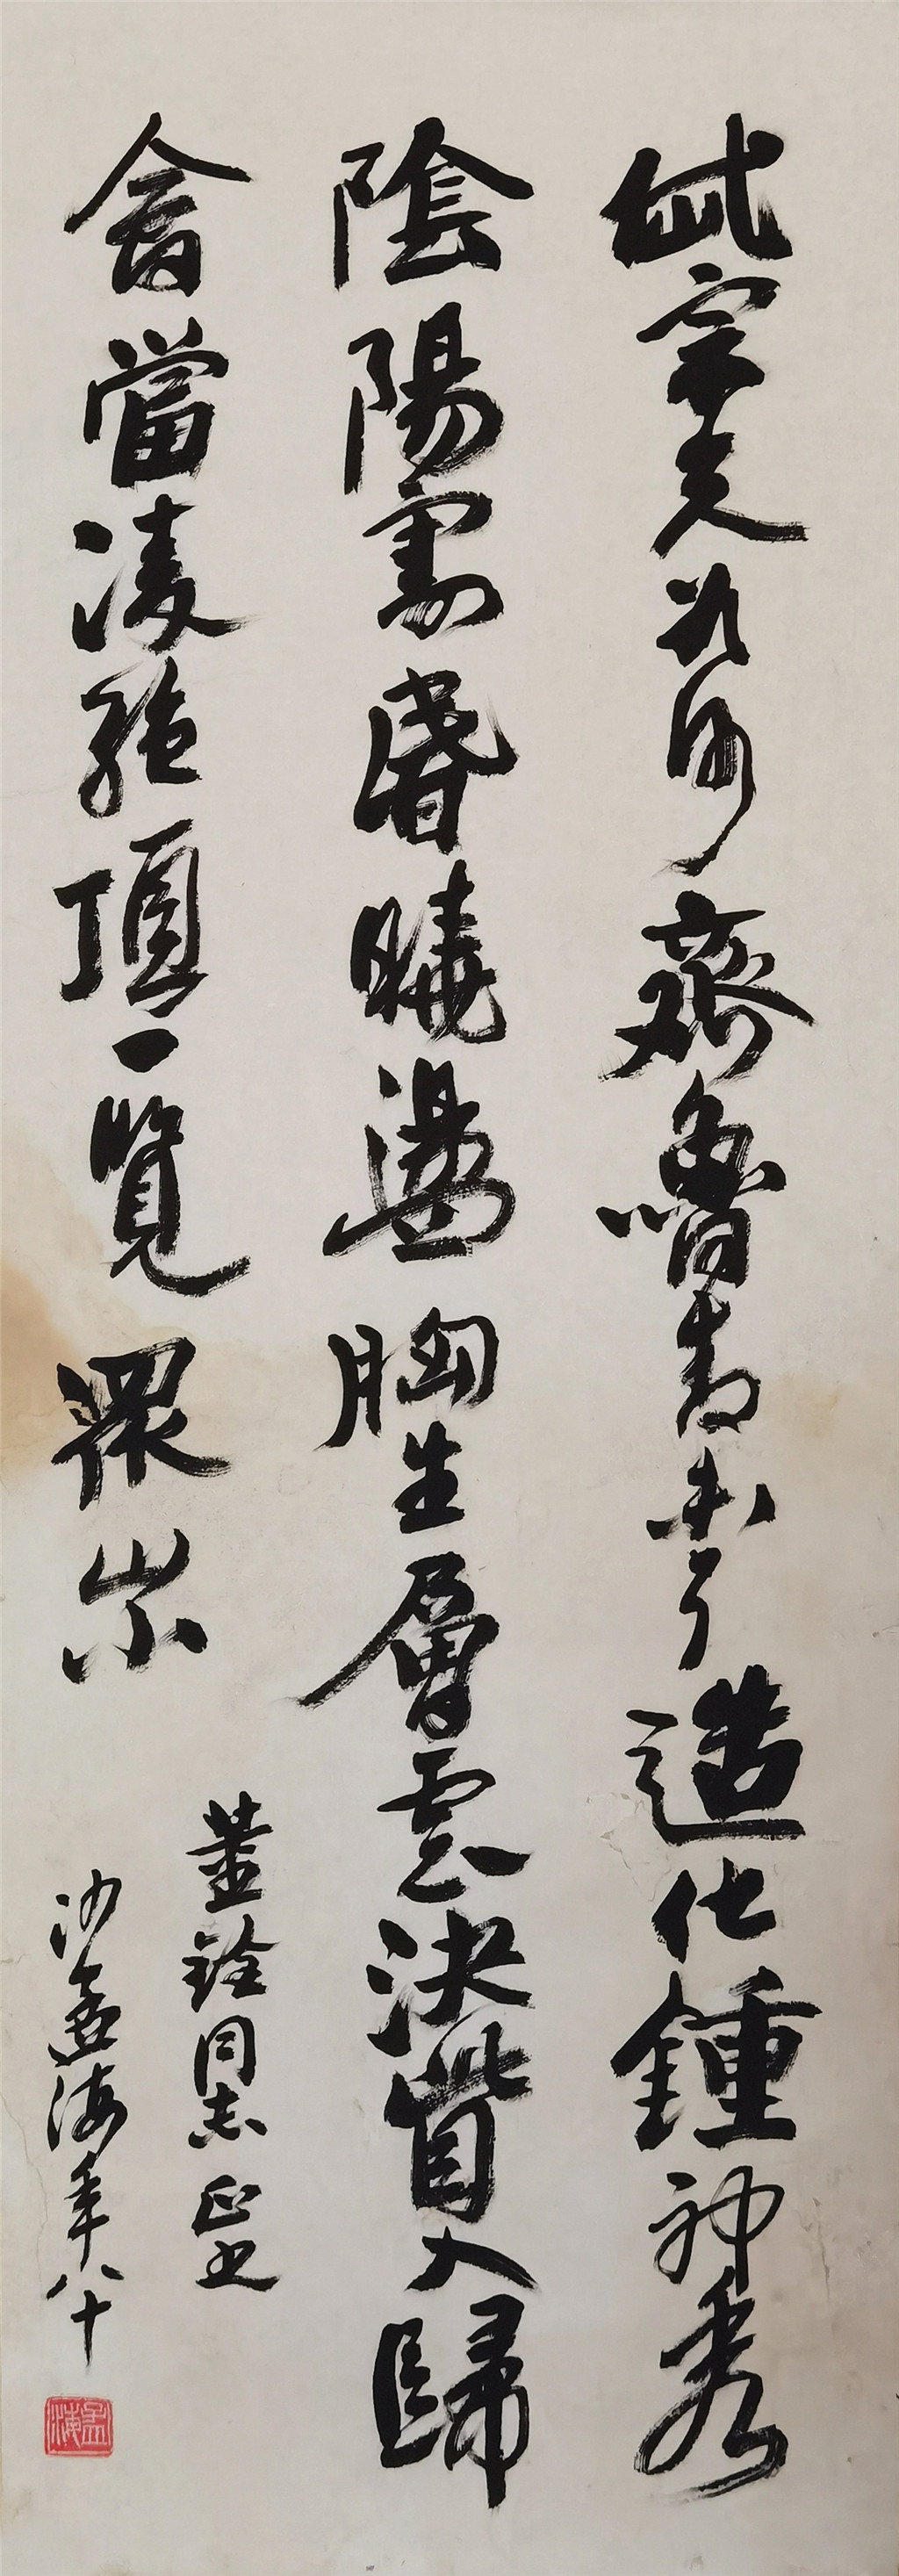 岱宗夫如何齊魯青未了造化鍾神秀
陰陽割昏曉盪胸生層雲決眥入歸
會當凌絕頂一覽眾山
董銓同志正之
沙孟海年八十
孟海